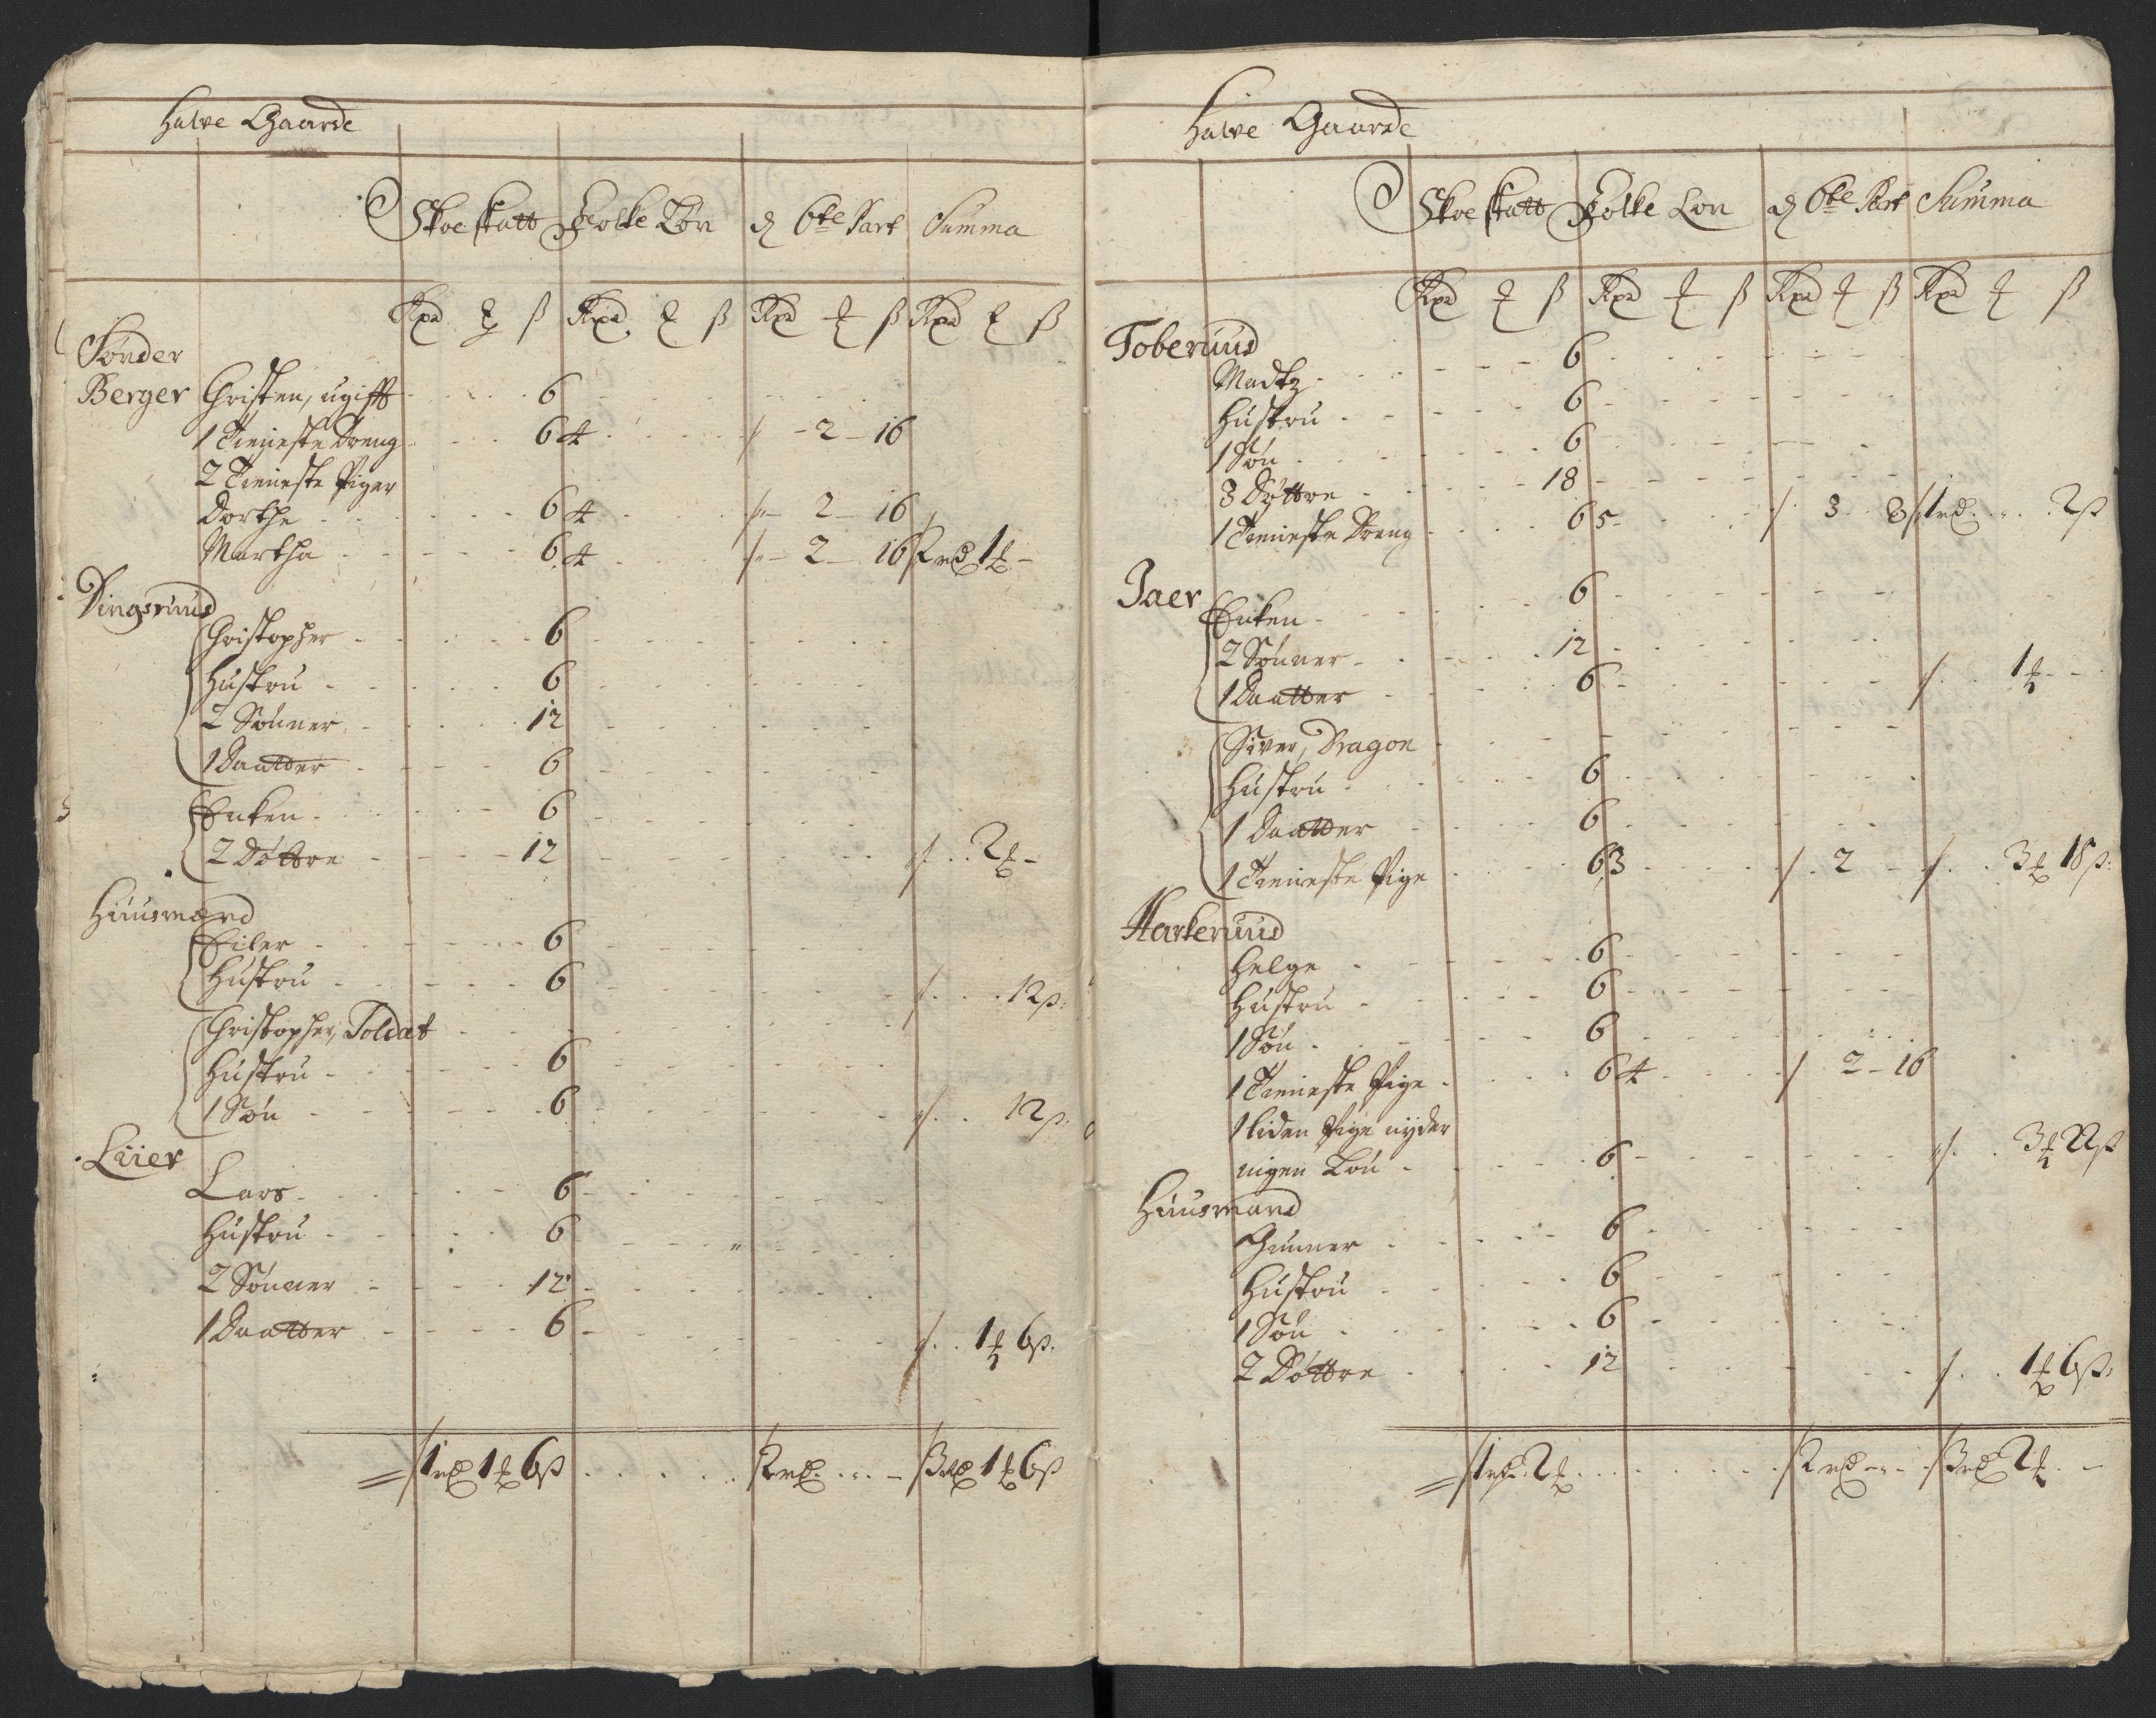 Halve Gaarde
Skoe skatt Folke Lön d 6te Part Summa
Rxd ß Rxd ß Rxd ß Rxd ß
Sönder
Berger Christen, ugifft 6
1 Tieneste Dreng 6 4 2 16
2 Tieneste Piger
Dorthe 6 4 2 16
Martha 6 4 2 16 2 rd 1
Dingsruud
Christopher 6
Hustru 6
2 Sönner 12
1 Daatter 6
Enken 6
2 Döttre 12 2
Huusmænd
Eiler 6
Hustru 6 12 ß
Christopher, Soldat
Hustru 6
1 Sön 6 12 ß
Liier
Lars 6
Hustru 6
2 Sönner 12
1 Daatter 6 1 6 ß
1 rd 1 6 ß 2 rd 3 rd 1 6 ß
Halve Gaarde
Skoe skatt Folke Lön d 6te Part Summa
Rxd ß Rxd ß Rxd ß Rxd ß
Toberuud
Madtz 6
Hustru 6
1 Sön 6
3 Döttre 18
1 Tieneste Dreng 6 5 3 8 1 rd 2 ß
Jaer Enken 6
2 Sönner 12
1 Daatter 6 1
Siver, Dragon
Hustru 6
1 Daatter 6
1 Tieneste Pige 6 3 2 3 18 ß
Harkeruud
Helge 6
Hustru 6
1 Sön 6
1 Tieneste Pige 6 4 2 16
1 liden Pige nyder
ingen Lön 6 3 22 ß
Huusmand
Gunner 6
Hustru 6
1 Sön 6
2 Döttre 12 1 6 ß
1 rd 2 2 rd 3 rd 2